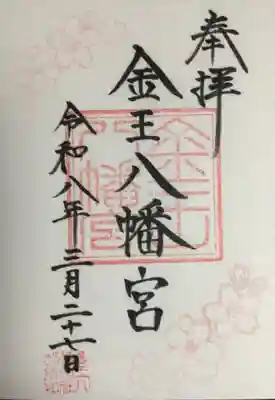 奉拝
金王八幡宮
令和八年三月二十七日